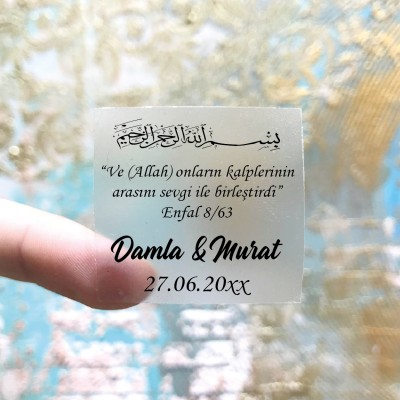 بسم الله الرحمن الرحيم
“Ve (Allah) onların kalplerinin
arasını sevgi ile birleştirdi”
Enfal 8/63
Damla & Murat
27.06.20xx